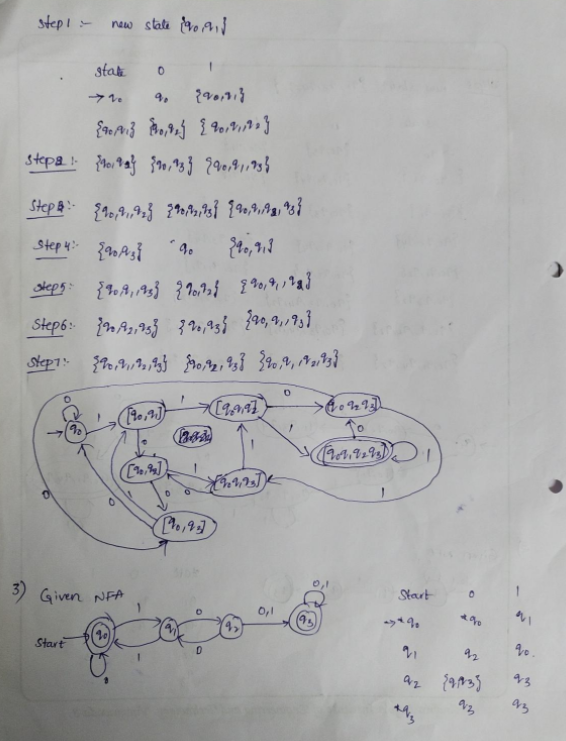 Step 1 :- new state {q0,q1}
State 0 1
→q0 q0 {q0,q1}
{q0,q1} {q0,q2} {q0,q1,q2}
Step 2:- {q0,q2} {q0,q3} {q0,q1,q3}
Step 3:- {q0,q1,q2} {q0,q2,q3} {q0,q1,q2,q3}
Step 4:- {q0,q3} q0 {q0,q1}
Step 5:- {q0,q1,q3} {q0,q2} {q0,q1,q2}
Step 6:- {q0,q2,q3} {q0,q3} {q0,q1,q3}
Step 7:- {q0,q1,q2,q3} {q0,q2,q3} {q0,q1,q2,q3}
0 1 [q0,q1] 1 [q0q1q2] 0 [q0q2q3]
q0 1 0 1 [q0q1q2q3] 1
[q0,q2] 1 0 [q0q1q3] 1
0 0 1 0
[q0,q3]
3) Given NFA
Start q0 1 1 0 q1 0 0 q2 0,1 q3 0,1
Start 0 1
→*q0 *q0 q1
q1 q2 q0
q2 {q1,q3} q3
*q3 q3 q3